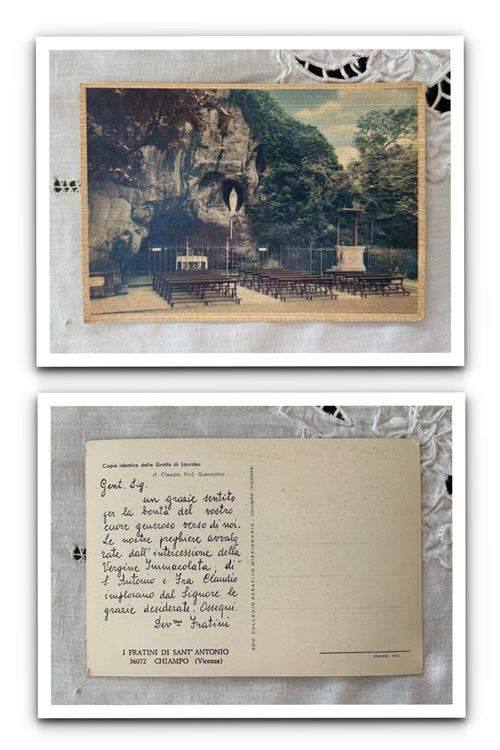 Copia identica della Grotta di Lourdes.
(f. Claudio Prof. Granzotto)
Gent. Sig.
un grazie sentito
per la bontà del vostro
cuore generoso verso di noi.
Le nostre preghiere avvalo
rate dall'intercessione della
Vergine Immacolata, di
S. Antonio e Fra Claudio
implorano dal Signore le
grazie desiderate. Ossequi.
Dev.mi Fratini
I FRATINI DI SANT'ANTONIO
36072 CHIAMPO (Vicenza)
EDIZ. COLLEGIO SERAFICO MISSIONARIO - CHIAMPO (VICENZA)
PROPR. RIS.